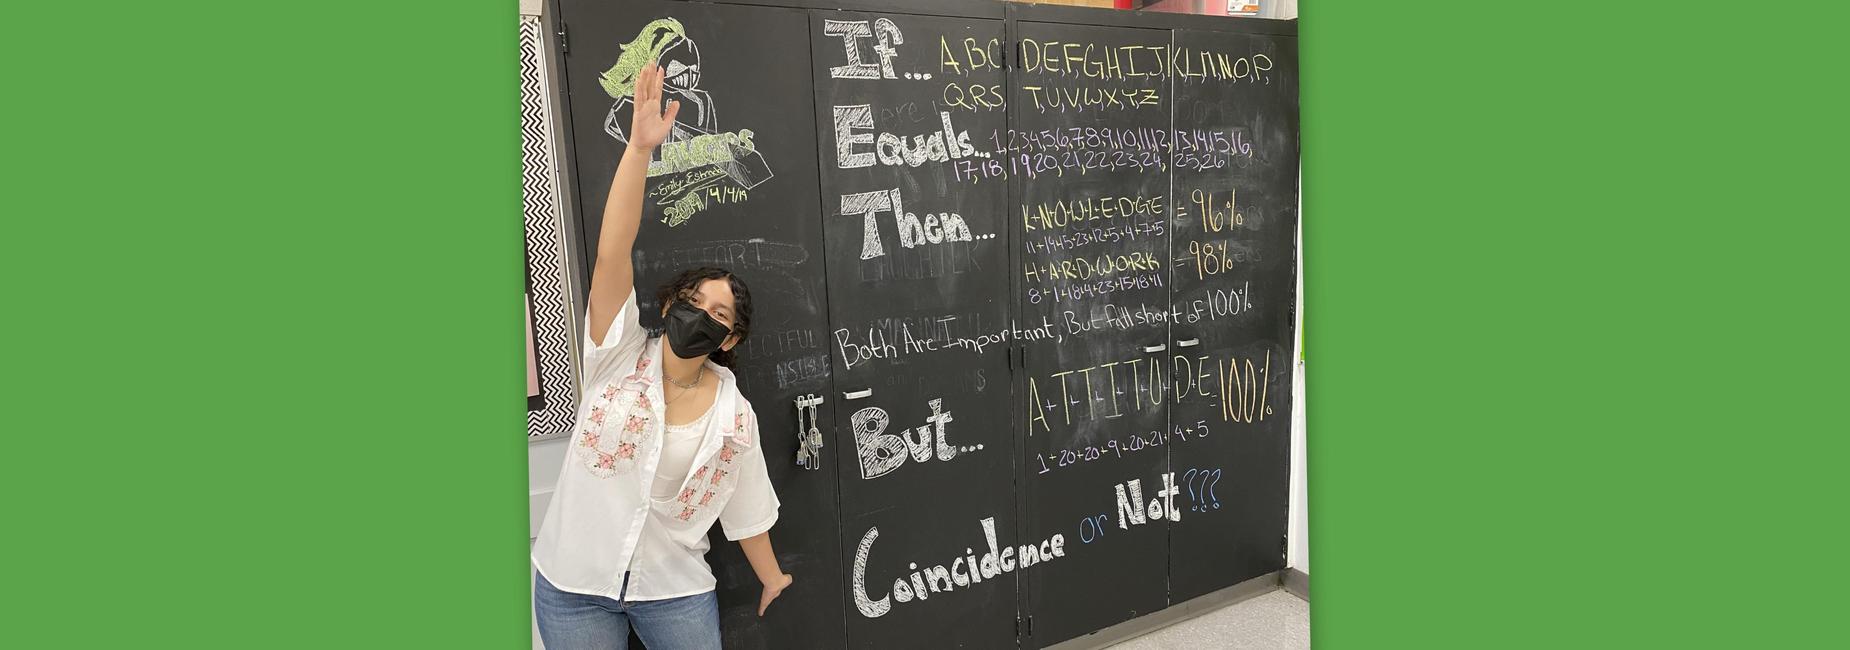 If... A,B,C,D,E,F,G,H,I,J,K,L,M,N,O,P,
Q,R,S,T,U,V,W,X,Y,Z
Equals... 1,2,3,4,5,6,7,8,9,10,11,12,13,14,15,16,
17,18,19,20,21,22,23,24,25,26
Then... K+N+O+W+L+E+D+G+E = 96%
11+14+15+23+12+5+4+7+5
H+A+R+D+W+O+R+K = 98%
8+1+18+4+23+15+18+11
Both Are Important, But fall short of 100%
But... A+T+T+I+T+U+D+E = 100%
1+20+20+9+20+21+4+5
Coincidence or Not???
~Emily Estrada
4/4/19